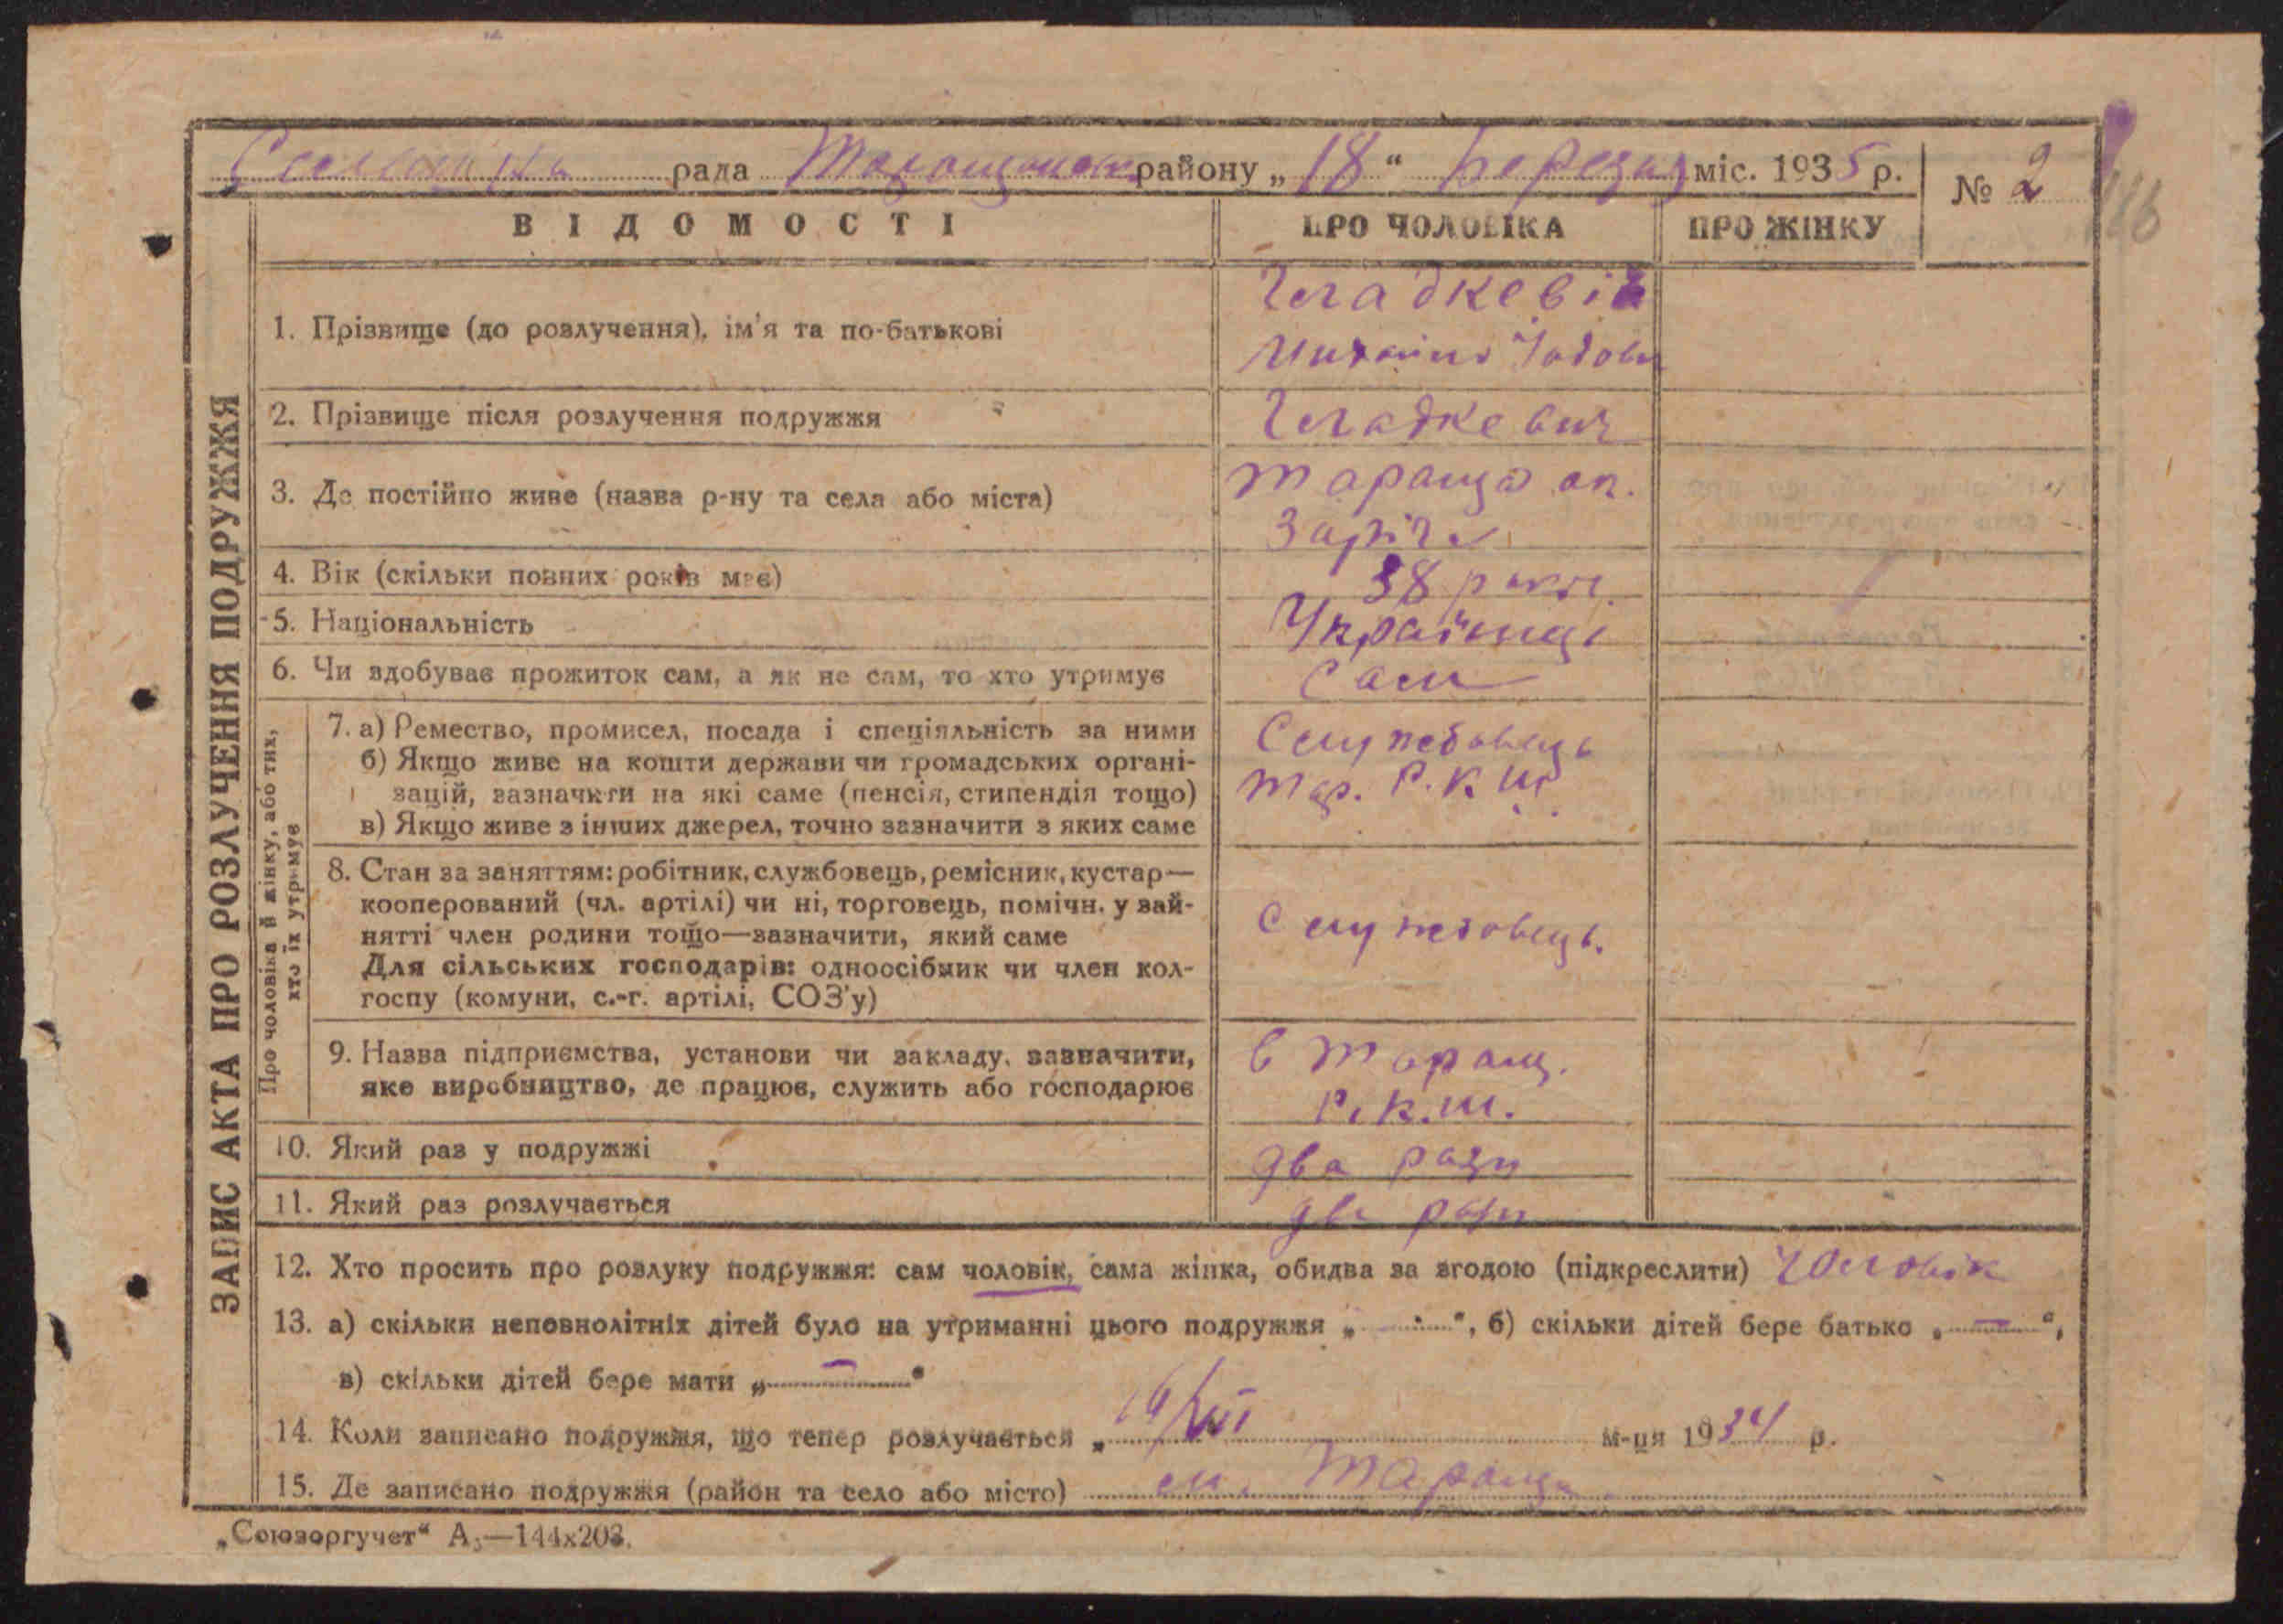 рада Таращанськ району „18“ березня міс. 1935 р.
№ 2
116
ВІДОМОСТІ
ПРО ЧОЛОВІКА
ПРО ЖІНКУ
ЗАПИС АКТА ПРО РОЗЛУЧЕННЯ ПОДРУЖЖЯ
1. Прізвище (до розлучення), ім'я та по-батькові
Гладкевіч
Михайло
2. Прізвище після розлучення подружжя
Гладкевич
3. Де постійно живе (назва р-ну та села або міста)
Тараща
4. Вік (скільки повних років має)
38 років
5. Національність
Українці
6. Чи здобуває прожиток сам, а як не сам, то хто утримує
Сам
Про чоловіка й жінку, або тих,
хто їх утримує
7. а) Ремество, промисел, посада і спеціяльність за ними
б) Якщо живе на кошти держави чи громадських органі-
зацій, зазначити на які саме (пенсія, стипендія тощо)
в) Якщо живе з інших джерел, точно зазначити з яких саме
Службовець
Тар. Р.К.Ш.
8. Стан за заняттям: робітник, службовець, ремісник, кустар—
кооперований (чл. артілі) чи ні, торговець, помічн. у зай-
нятті член родини тощо—зазначити, який саме
Для сільських господарів: одноосібник чи член кол-
госпу (комуни, с.-г. артілі, СОЗ'у)
Службовець.
9. Назва підприємства, установи чи закладу, зазначити,
яке виробництво, де працює, служить або господарює
в Таращ.
Р.К.Ш.
10. Який раз у подружжі
два рази
11. Який раз розлучається
два рази
12. Хто просить про розлуку подружжя: сам чоловік, сама жінка, обидва за згодою (підкреслити) Чоловік
13. а) скільки неповнолітніх дітей було на утриманні цього подружжя „ - “, б) скільки дітей бере батько „ — “,
в) скільки дітей бере мати „ — “
14. Коли записано подружжя, що тепер розлучається „ 16/VIII м-ця 1934 р.
15. Де записано подружжя (район та село або місто) м. Тараща.
„Союзоргучет“ А₅—144х203.